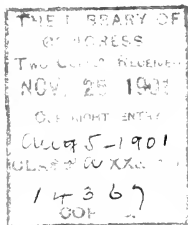 THE LIBRARY OF
CONGRESS
TWO COPIES RECEIVED
NOV. 25 1901
COPYRIGHT ENTRY
Aug 5-1901
CLASS XXc.
14367
COPY